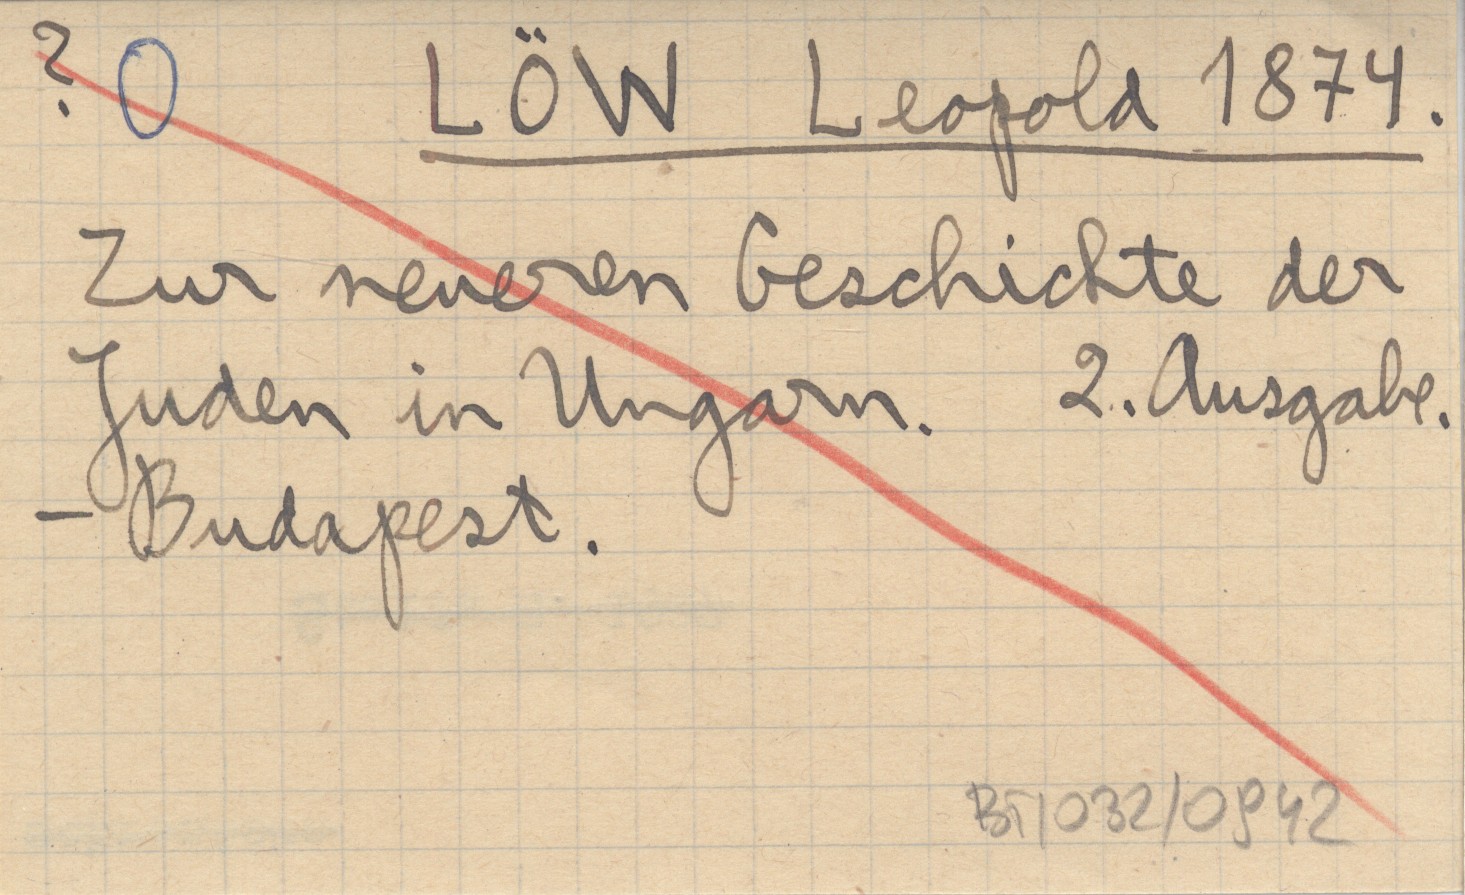 ? O LÖW Leopold 1874.
Zur neueren Geschichte der
Juden in Ungarn. 2. Ausgabe.
– Budapest.
BT/032/0942